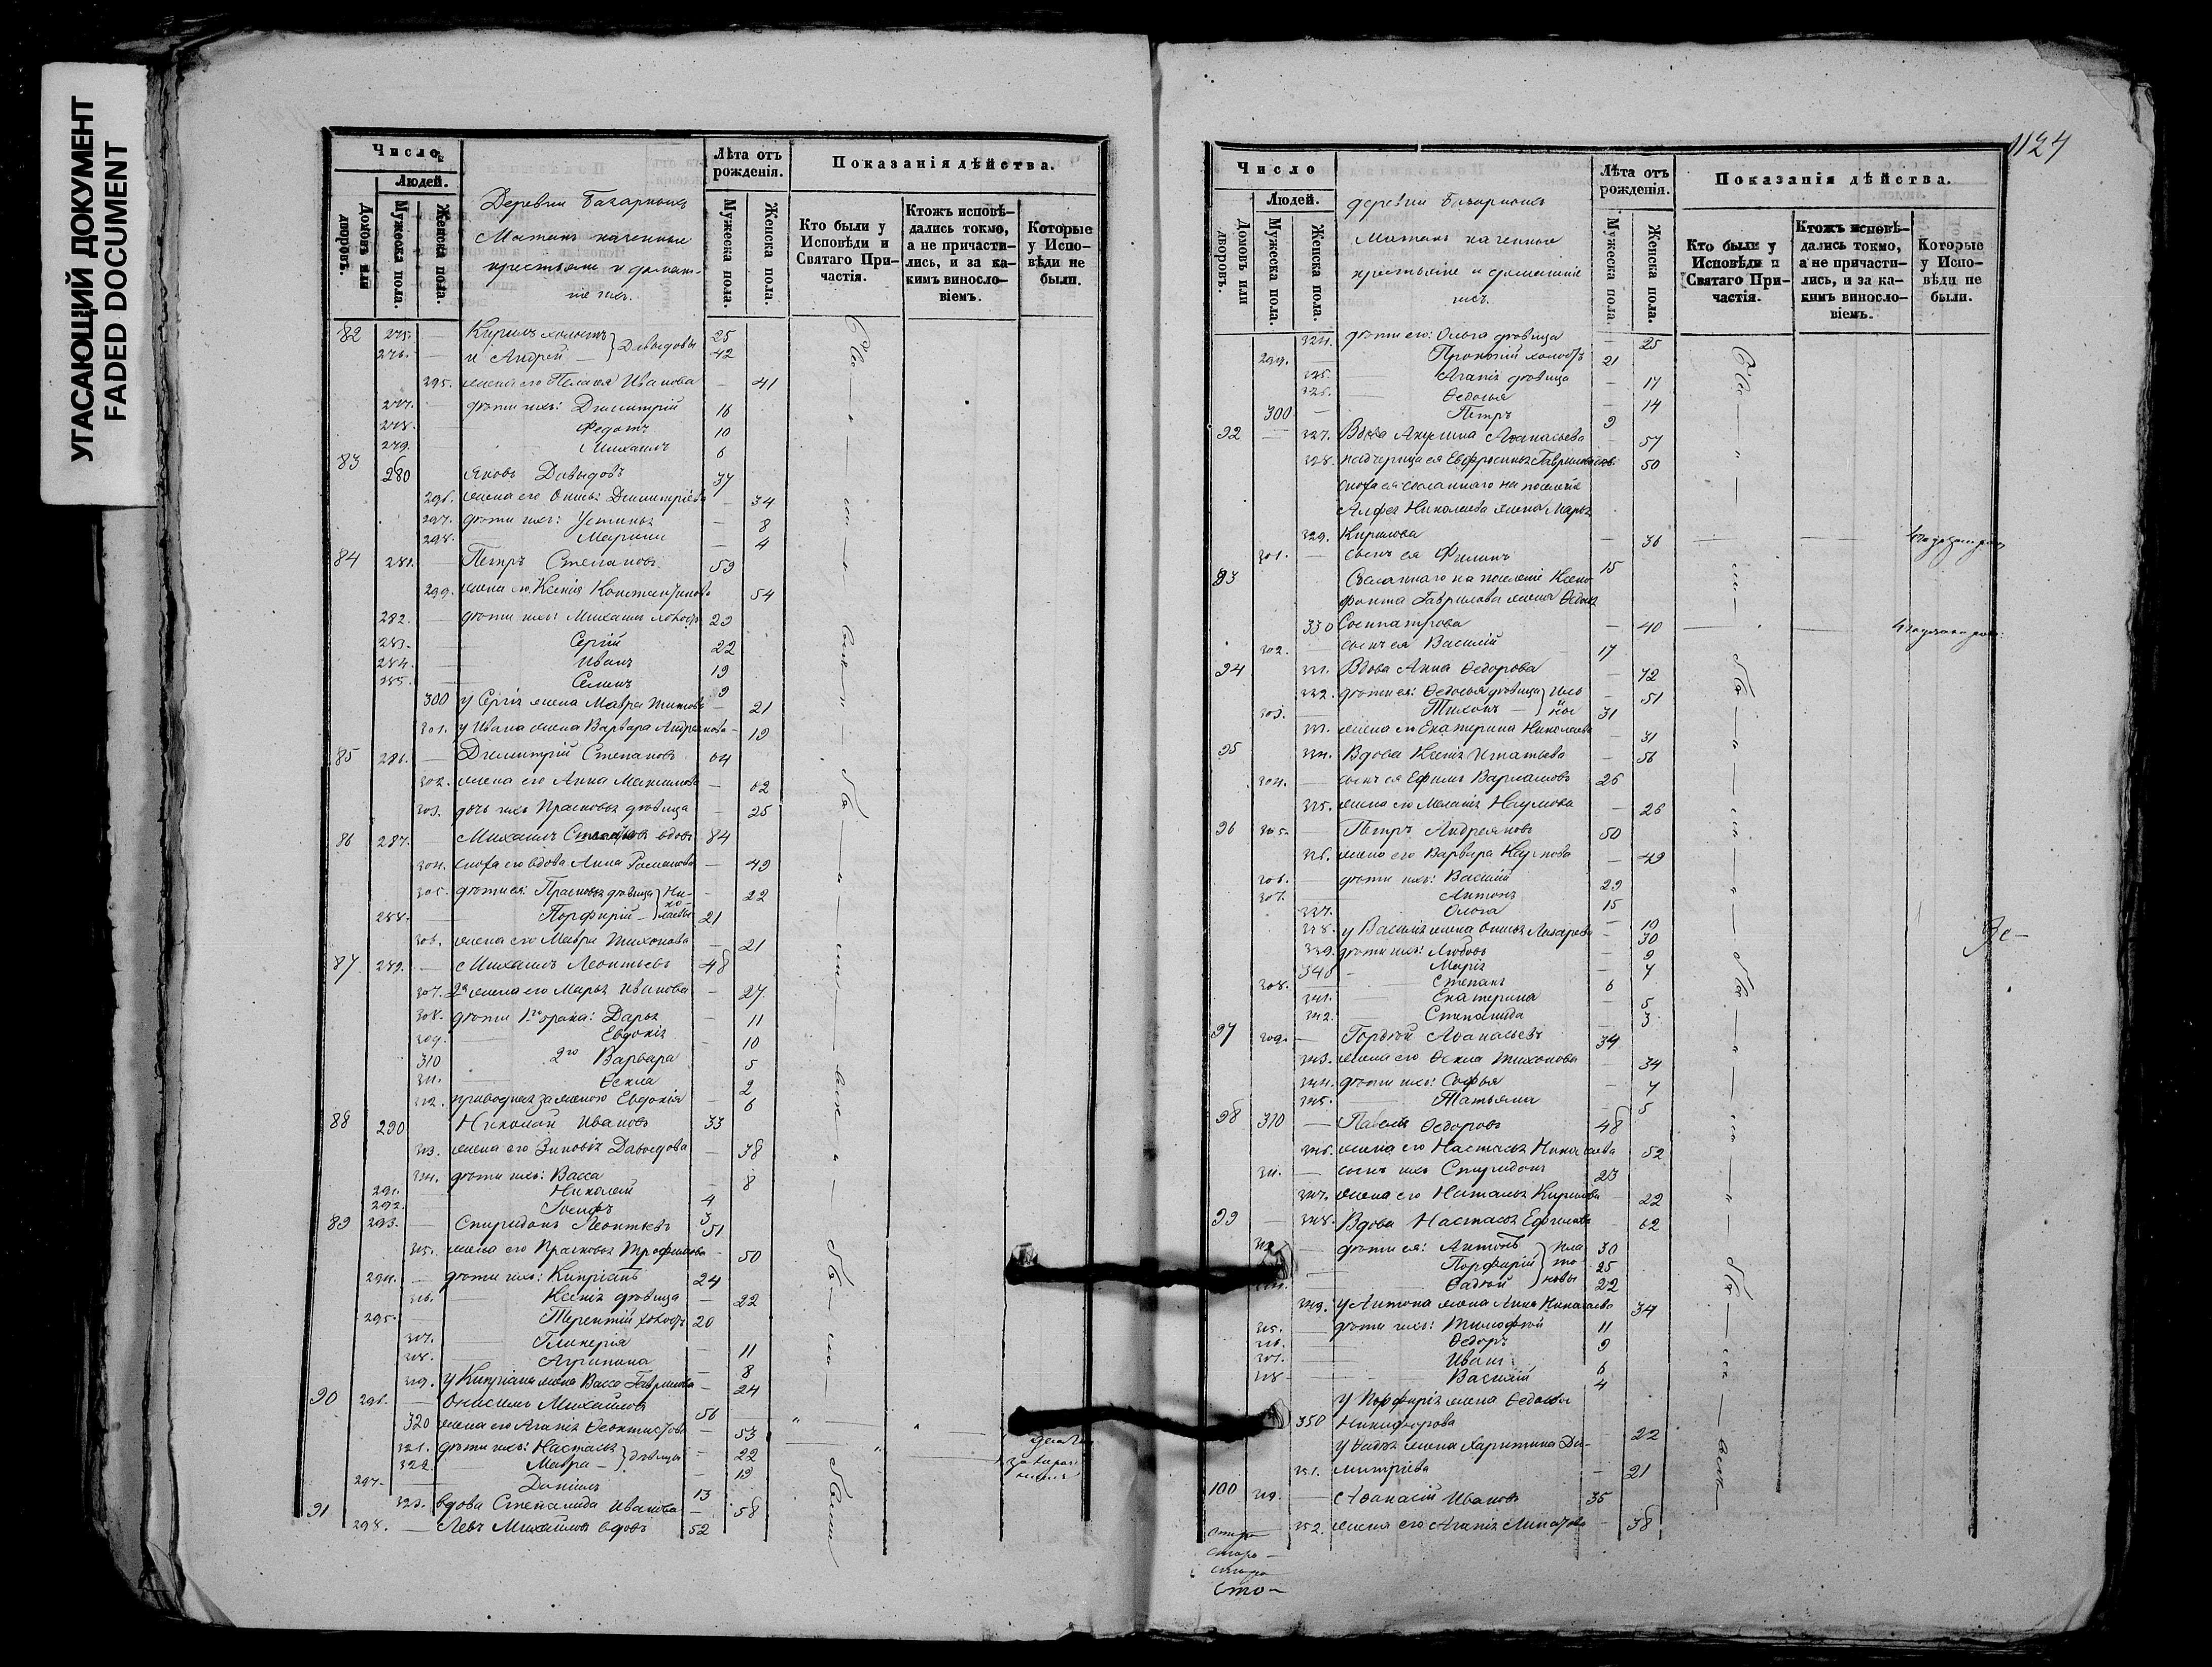 УГАСАЮЩИЙ ДОКУМЕНТ
FADED DOCUMENT
Число
Людей.
Домовъ или дворовъ.
Мужеска пола.
Женска пола.
Деревни Базарныхъ
Матакъ казенные
крестьяне и домаш-
ніе ихъ.
Лѣта отъ рожденія.
Мужеска пола.
Женска пола.
Показанія дѣйства.
Кто были у Исповѣди и Святаго При-частія.
Ктожъ исповѣ-дались токмо, а не причасти-лись, и за ка-кимъ виносло-віемъ.
Которые у Испо-вѣди не были.
82 275. — Кирилъ холостъ } Давыдовы 25
276. — и Андрей — 42
295. жена его Пелагея Иванова — 41
277. — дѣти ихъ: Димитрій 16
278. Федотъ 10
279. Михаилъ 6
83 280 Яковъ Давыдовъ 37
296. жена его Димитріева — 34
297. дѣти ихъ: Устинья — 8
298. — 4
84 281. — Петръ Степановъ 59
299. жена его Ксенія Константинова 54
282. — дѣти ихъ: Михаилъ холостъ 29
283. — Сергій 22
284. — Иванъ 19
285. 9
300 у Сергія жена Мавра Титова — 21
301. у Ивана жена Варвара Андреянова — 19
85 286. — Димитрій Степановъ 64
302. жена его Анна Максимова — 62
303. дочь ихъ Прасковья дѣвица — 25
86 287. — Михаилъ вдовъ 84
304. сноха его вдова Анна Романова — 49
305. дѣти ея: Прасковья дѣвица } Ни- — 22
ко-
288. — Порфирій — лаевы 21
306. жена его Мавра Тихонова — 21
87 289. — Михаилъ Леонтьевъ 48
307. 2я жена его Марья Иванова — 27
308. дѣти 1го брака: Дарья — 11
309. Евдокія — 10
310 2го Варвара 5
311. — Ѳекла 2
312. приводная за женою Евдокія — 6
88 290 Николай Ивановъ 33
313. жена его Зиновія Давыдова — 38
314. дѣти ихъ: Васса — 8
291. Николай 4
292. Іосифъ 3
89 293. — Спиридонъ Леонтьевъ 51
315. жена его Прасковья Трофимова — 50
294. — дѣти ихъ: Кипріанъ 24
316. Ксенія дѣвица — 22
295. — Терентій холостъ 20
317. — Гликерія — 11
318. — Агрипина — 8
319. у Кипріана жена Васса Гаврилова — 24
90 296. — Онисимъ Михайловъ 56
320 жена его Агапія Ѳеоктистова — 53
321. дѣти ихъ: Настасья } дѣвицы — 22
322. — Мавра — — 19
297. — Даніилъ 13
91 323. вдова Степанида Иванова — 58
298. — Левъ Михайловъ вдовъ 52
были
1124
Число
Людей.
Домовъ или дворовъ.
Мужеска пола.
Женска пола.
деревни Базарныхъ
Матакъ казенные
крестьяне и домашніе
ихъ.
Лѣта отъ рожденія.
Мужеска пола.
Женска пола.
Показанія дѣйства.
Кто были у Исповѣди и Святаго При-частія.
Ктожъ исповѣ-дались токмо, а не причасти-лись, и за ка-кимъ виносло-віемъ.
Которые у Испо-вѣди не были.
324. дѣти его: Ольга дѣвица — 25
299. — Прокопій холостъ 21
325. — Агапія дѣвица — 17
326. — Ѳедосья — 14
300 — Петръ 9
92 — 327. Вдова Акулина Аѳанасьева — 57
328. падчерица ея Евфросинья Гаврилова 50
сноха ея сосланнаго на поселеніе
Алфея Николаева жена Марья
329. Кирилова — 36
301. — сынъ ея Филипъ 15
93 Сосланнаго на поселеніе Ксено-
фонта Гаврилова жена Ѳедосья
330 Сосипатрова — 40
302. — сынъ ея Василій 17
94 331. Вдова Анна Ѳедорова — 72
332. дѣти ея: Ѳедосья дѣвица } Иль- — 51
303. — Тихонъ — ины 31
333. жена его Екатерина Николаева — 31
95 334. Вдова Ксенія Игнатьева — 56
304. — сынъ ея Ефимъ Варламовъ 26
335. жена его Меланія Наумова — 26
96 305. — Петръ Андреяновъ 50
336. жена его Варвара Наумова — 49
306. — дѣти ихъ: Василій 29
307. Антонъ 15
337. Ольга — 10
338. у Василія жена Лазарева — 30
339. дѣти ихъ: Любовь — 9
340 — Марія — 7
308. — Степанъ 6
341. Екатерина — 5
342. Степанида — 3
97 309. — Гордѣй Аѳанасьевъ 34
343. жена его Ѳекла Тихонова — 34
344. дѣти ихъ: Софья — 7
345. — Татьяна — 5
98 310 — Павелъ Ѳедоровъ 48
346. жена его Настасья Николаева 52
311. — сынъ ихъ Спиридонъ 23
347. жена его Наталья Кирилова — 22
99 — 348. Вдова Настасья Ефимова — 62
312 — дѣти ея: Антонъ } Пла- 30
— Порфирій то- 25
— Ѳадѣй новы 22
349. у Антона жена Анна Николаева 34
315. — дѣти ихъ: Тимофѣй 11
316. Ѳедоръ 9
317. Иванъ 6
318 — Василій 4
у Порфирія жена Ѳедосья
350 Никифорова 22
у Ѳадѣя жена Харитина Ди-
351. митріева — 21
100 319. — Аѳанасій Ивановъ 35
352. жена его Агапія 38
сто—